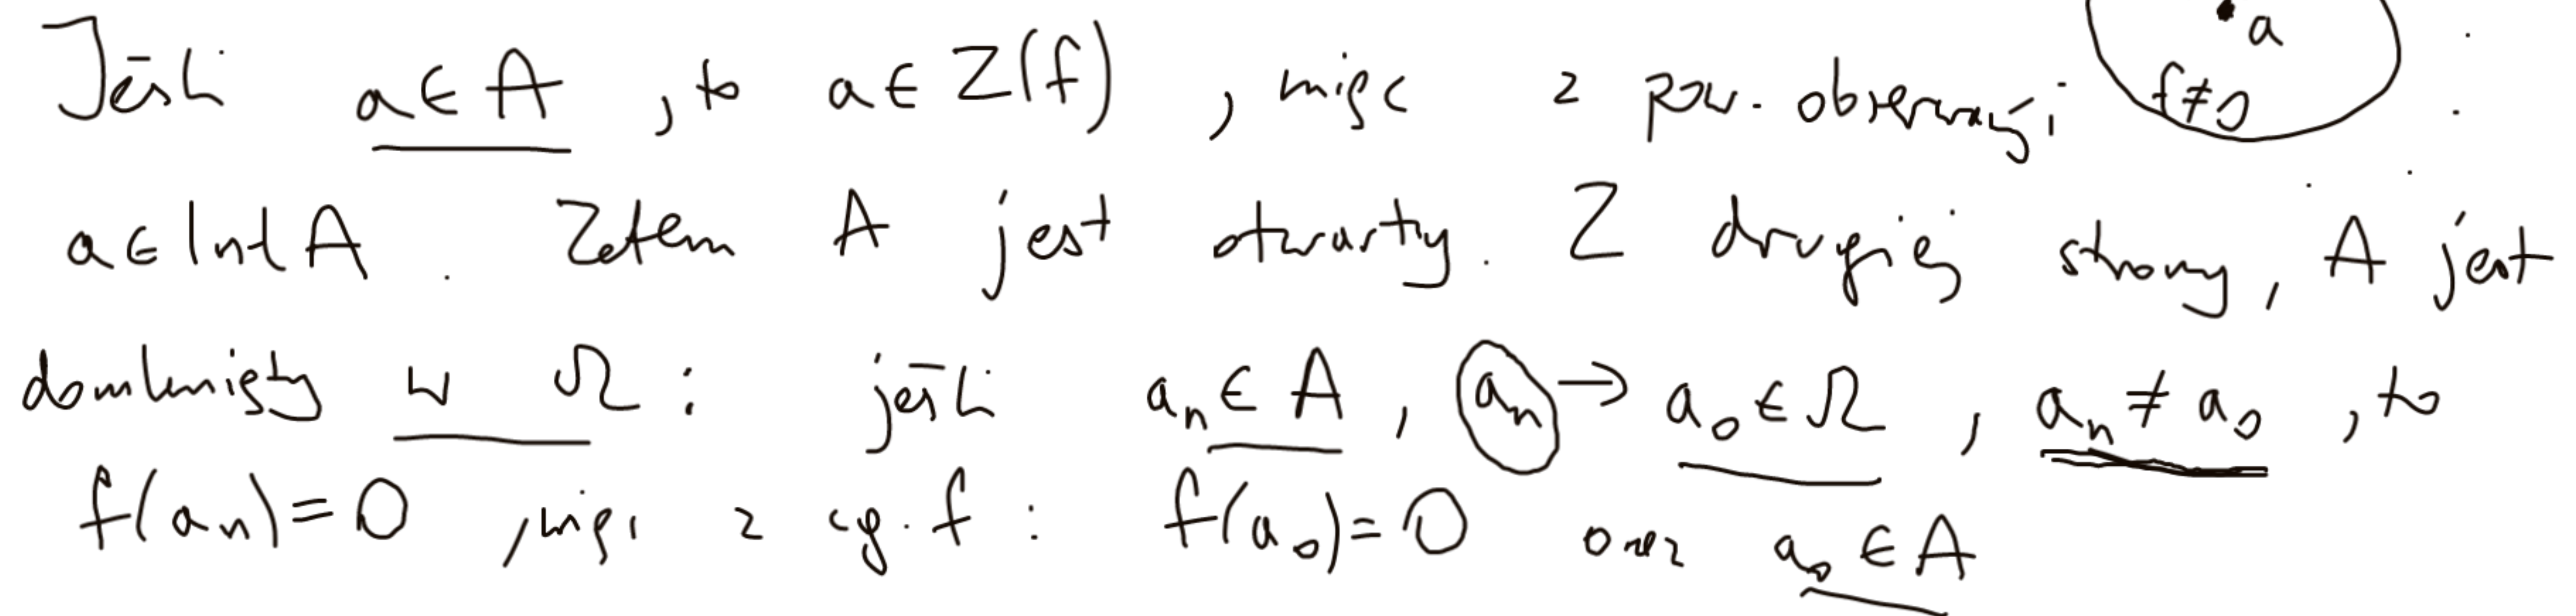 Jeśli a ∈ A , to a ∈ Z(f) , więc z pow. obserwacji a f≠0
a ∈ Int A . Zatem A jest otwarty. Z drugiej strony, A jest
domknięty w Ω : jeśli aₙ ∈ A , aₙ → a₀ ∈ Ω , aₙ ≠ a₀ , to
f(aₙ)=0 , więc z cg. f : f(a₀)=0 oraz a₀ ∈ A